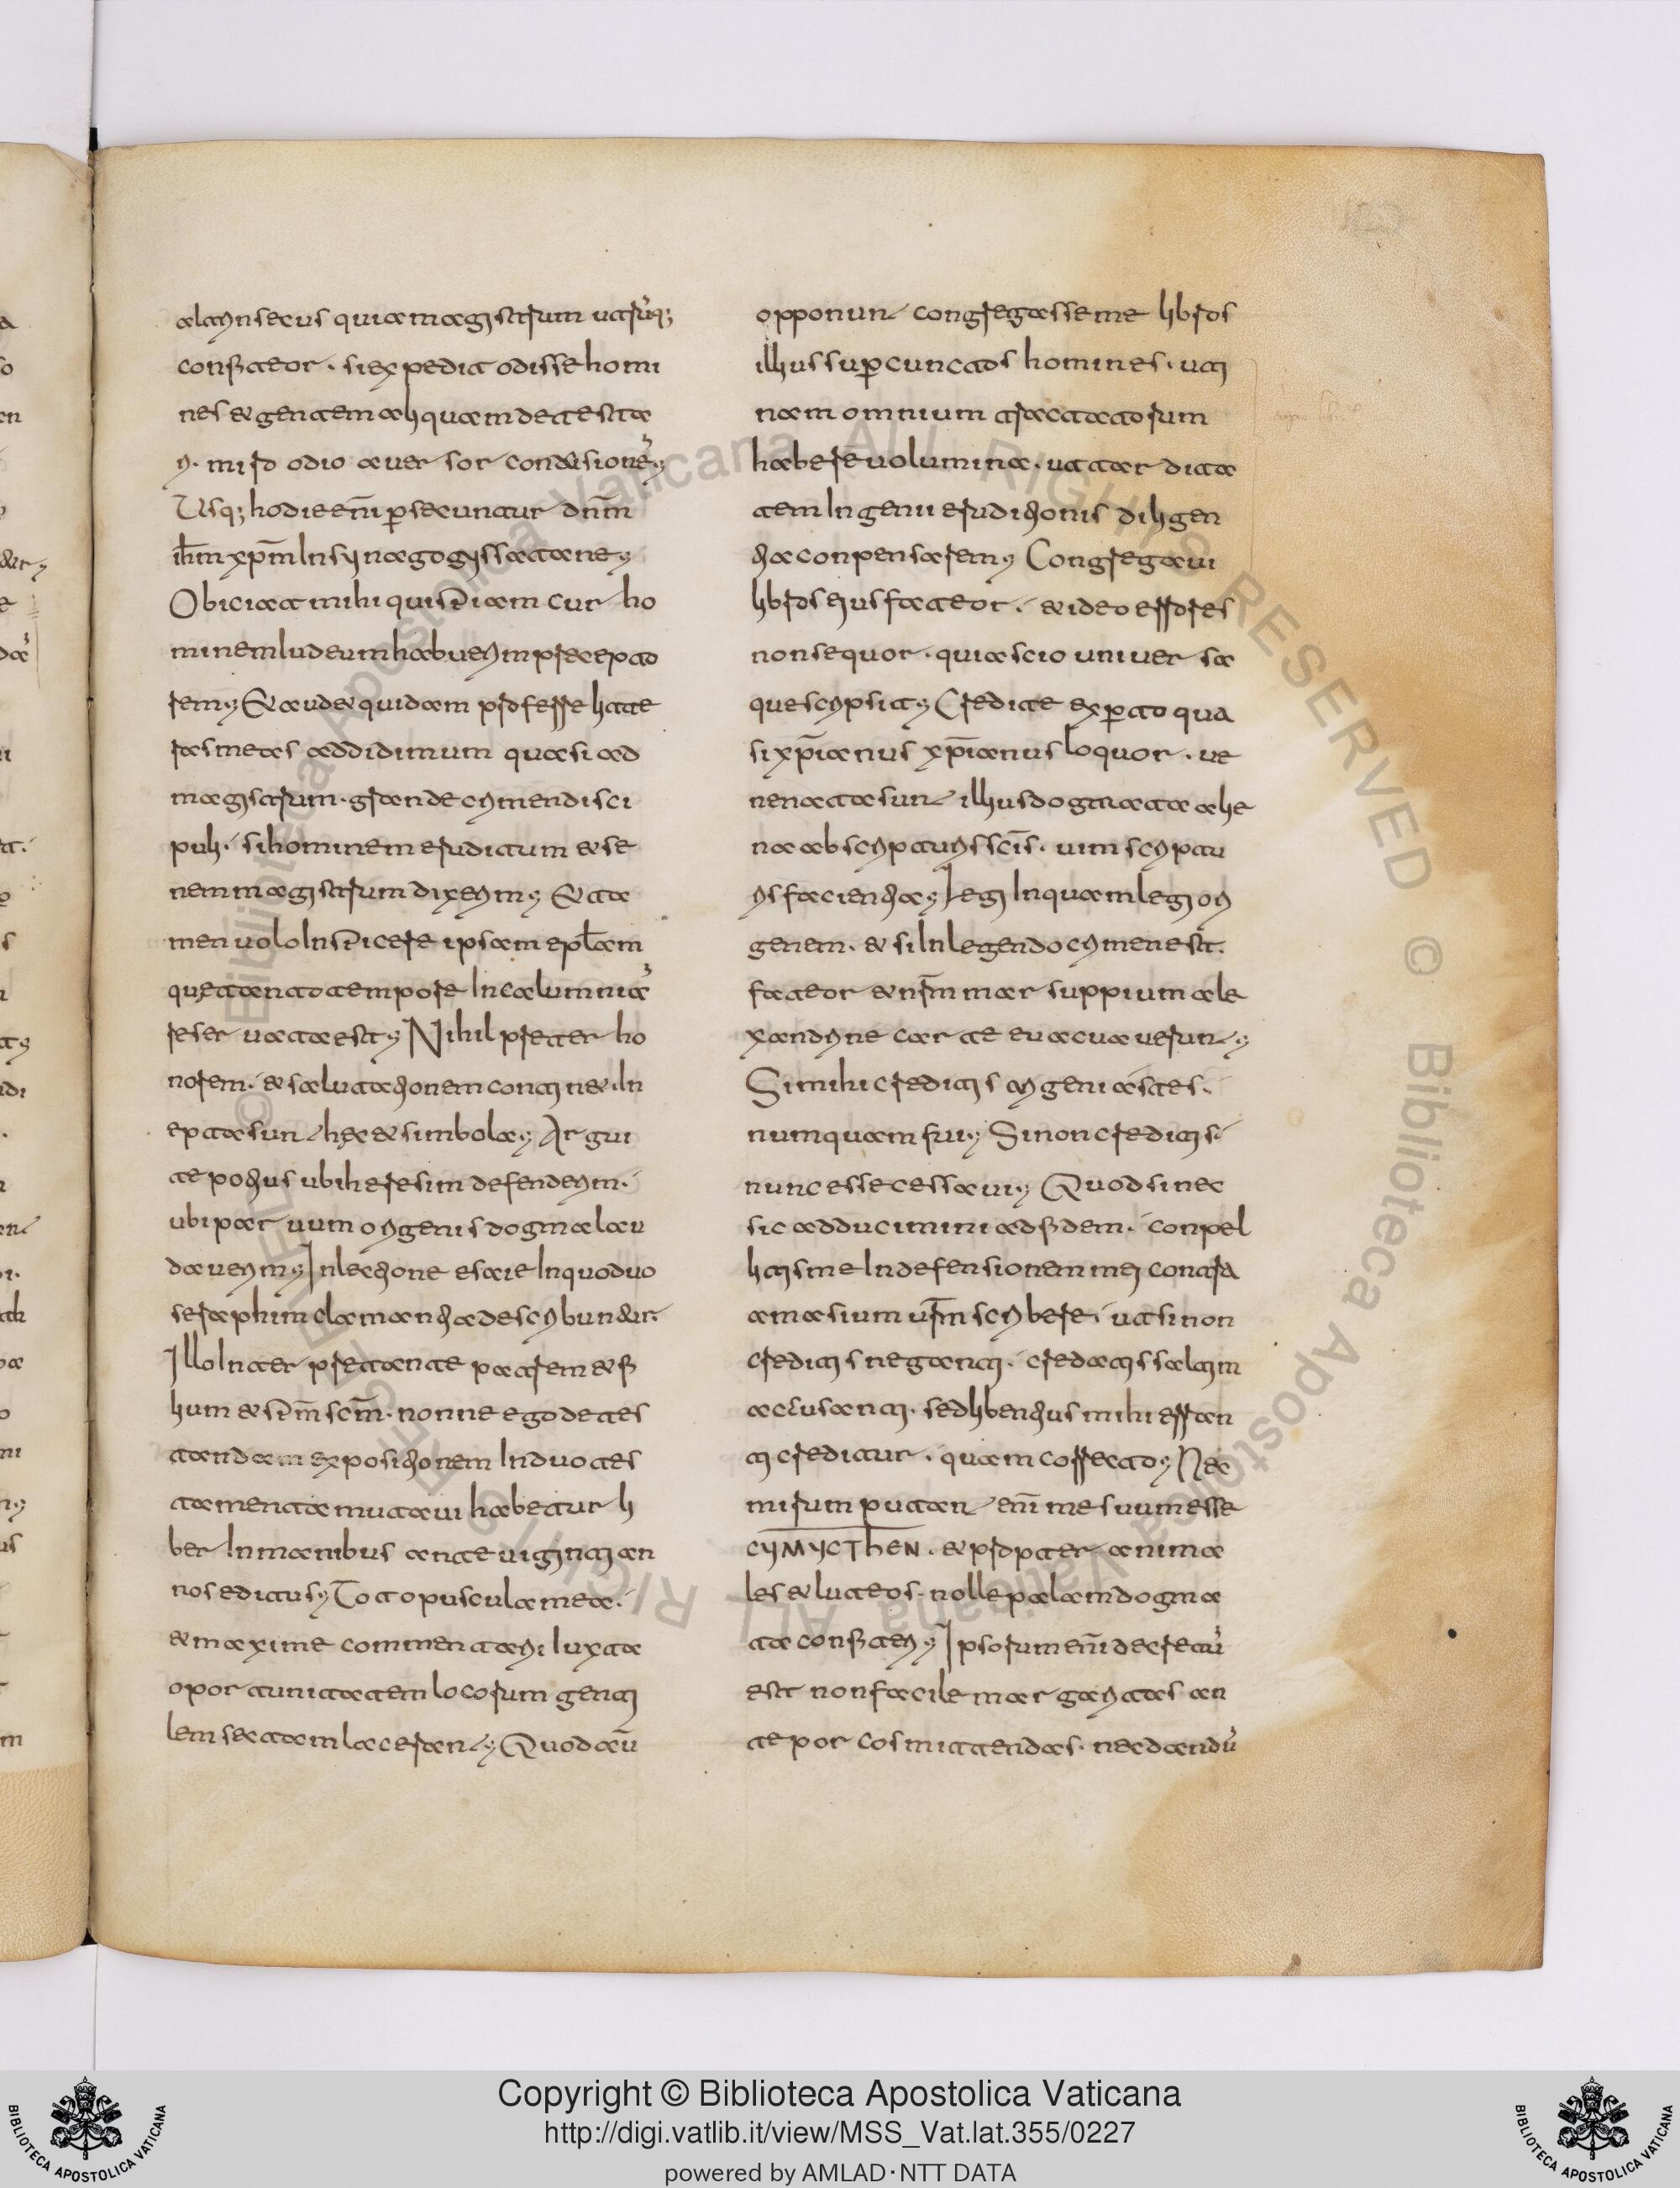 altrinsecus quia magistrum utrūq;
confiteor. si expedit odisse homi
nes et gentem aliquam detesta
ri. miro odio aversor condisionē;
Usq; hodie enī persecuntur dnm̄
ihm̄ xpm̄ In synagogis satane;
Obiciat mihi quispiam cur ho
minem Iudeum habuerim precepto
rem; Et audet quidam proferre litte
ras meas ad didimum quasi ad
magistrum. grande crimen disci
puli. si hominem eruditum et se
nem magistrum dixerim; Et ta
men volo Inspicere ipsam eplam
que tanto tempore In calumnia
reservata est; Nihil preter ho
norem. et salutationem continet. In
epta sunt hęc et simbola; Argui
te potius ubi heresim defenderim.
ubi parvum origenis dogma lau
daverim; In lectione esaie In quo duo
seraphim clamantia describuntur.
Illo Interpretante patrem et fi
lium et spm̄ scm̄. nonne ego detes
tandam expositionem In duo tes
tamenta mutavi habetur li
ber In manibus ante viginti an
nos editus; Tot opuscula mea.
et maxime commentarii Iuxta
oportunitatem locorum genti
lem sectam lacerant; Quod aū
opponunt congregasse me libros
illius super cunctos homines. uti
nam omnium tractatorum
habere volumina. ut tardita
tem Ingenii eruditionis diligen
tia conpensarem; Congregavi
libros eius fateor. et ideo errores
non sequor. quia scio universa
que scripsit; Credite experto qua
si xpīanus xpīanus loquor. ve
nenata sunt illius dogmata alie
na ab scripturis scīs. vim scriptu
ris facientia; Legi Inquam legi ori
genem. et si In legendo crimen est.
fateor et nrm̄ marsuppium ale
xandrine carte evacuaverunt;
Si mihi creditis origeniastes.
numquam fui; Si non creditis.
nunc esse cessavi; Quod si nec
sic adducimini ad fidem. conpel
litis me In defensionem mei contra
amasium urm̄ scribere. ut si non
creditis neganti. credatis saltim
accusanti. sed libentius mihi erran
ti creditur. quam correcto; Nec
mirum putant enī me suum esse
CYMYCTHEN. et propter anima
les et luteos. nolle palam dogma
ta confiteri; Ipsorum enī decretū
est non facile margaritas an
te porcos mittendas. nec dandū
Copyright © Biblioteca Apostolica Vaticana
http://digi.vatlib.it/view/MSS_Vat.lat.355/0227
powered by AMLAD·NTT DATA